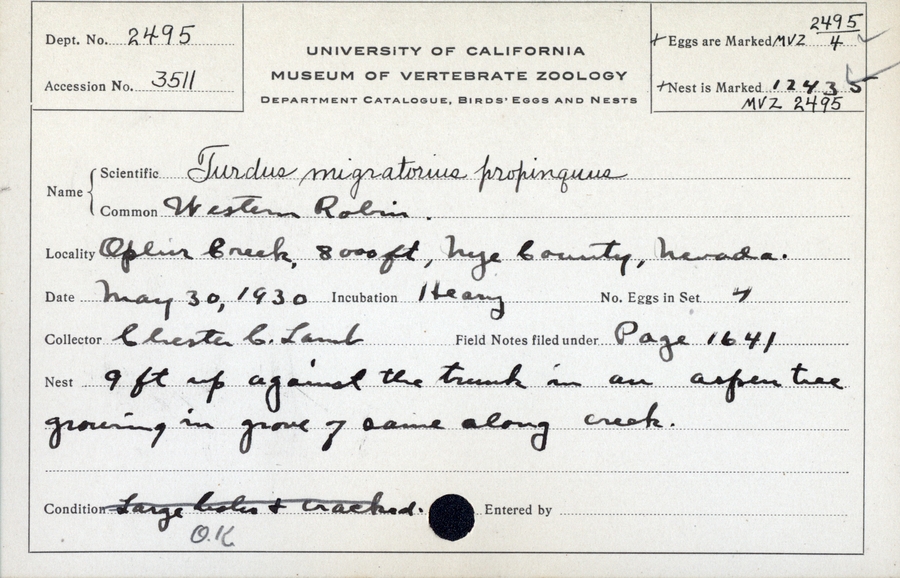 Dept. No. 2495
Accession No. 3511
UNIVERSITY OF CALIFORNIA
MUSEUM OF VERTEBRATE ZOOLOGY
DEPARTMENT CATALOGUE, BIRDS' EGGS AND NESTS
+ Eggs are Marked MVZ 2495/4
+ Nest is Marked 12435
MVZ 2495
Name
Scientific Turdus migratorius propinquus
Common Western Robin.
Locality Creek, 8000 ft, Nye County, Nevada.
Date May 30, 1930 Incubation Heavy No. Eggs in Set 4
Collector Chester C. Lamb Field Notes filed under Page 1641
Nest 9 ft up against the trunk in an aspen tree
growing in grove of same along creek.
Condition Large holes & cracked. Entered by
O.K